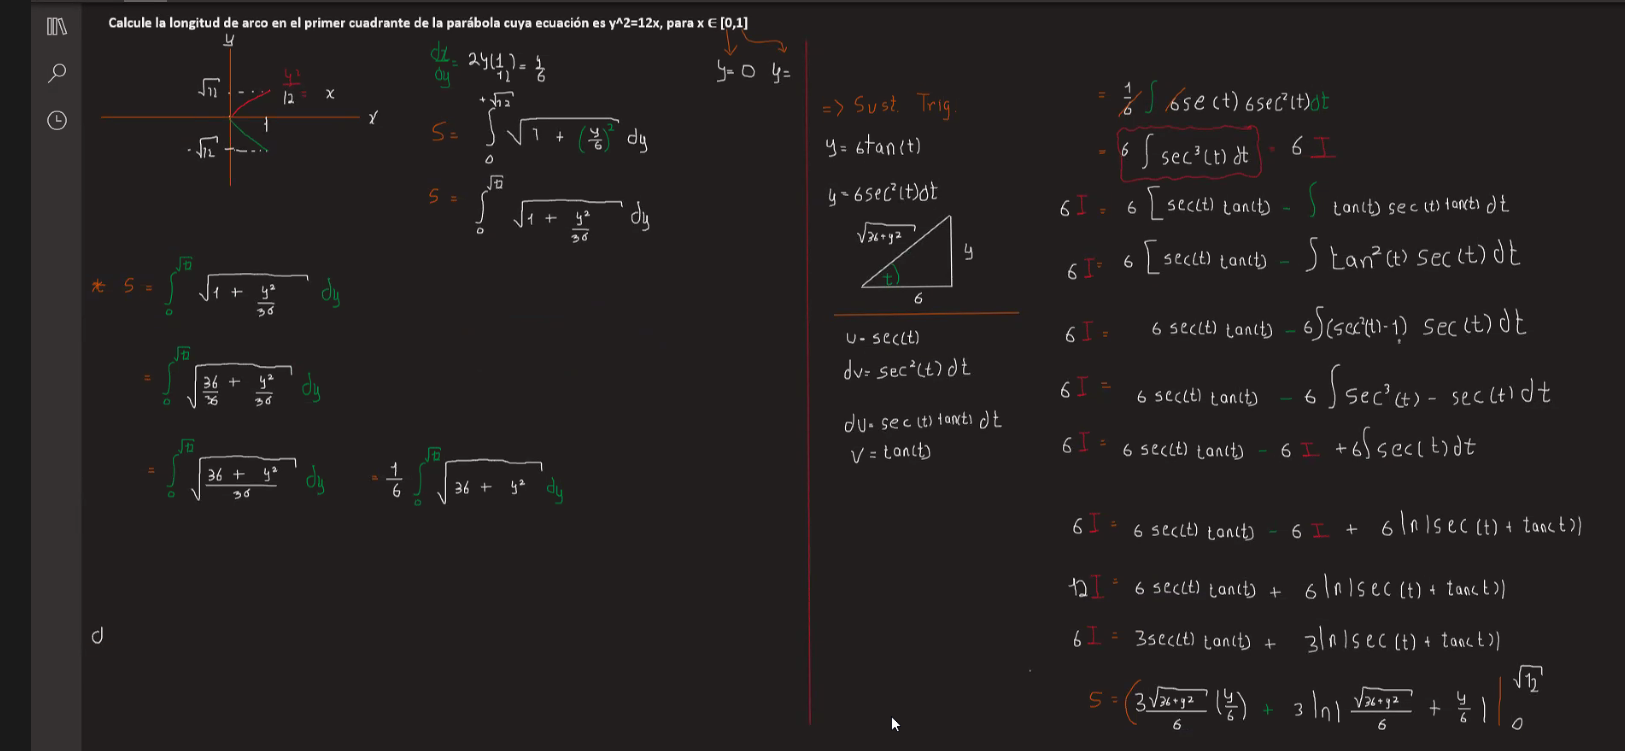 Calcule la longitud de arco en el primer cuadrante de la parábola cuya ecuación es y^2=12x, para x ∈ [0,1]
y
√12
y²/12 = x
1
x
-√12
dx/dy = 2y(1/12) = y/6
S = ∫₀^{+√12} √(1 + (y/6)²) dy
S = ∫₀^{√12} √(1 + y²/36) dy
y= 0 y=
* S = ∫₀^{√12} √(1 + y²/36) dy
= ∫₀^{√12} √(36/36 + y²/36) dy
= ∫₀^{√12} √((36 + y²)/36) dy = 1/6 ∫₀^{√12} √(36 + y²) dy
d
=> Sust. Trig.
y= 6tan(t)
y= 6sec²(t)dt
√36+y²
y
t
6
u= sec(t)
dv= sec²(t) dt
du= sec(t) tan(t) dt
v = tan(t)
= 1/6 ∫ 6se(t) 6sec²(t)dt
= 6 ∫ sec³(t) dt = 6 I
6I = 6 [sec(t) tan(t) - ∫ tan(t) sec(t) tan(t) dt
6I= 6 [sec(t) tan(t) - ∫ tan²(t) sec(t) dt
6I = 6 sec(t) tan(t) - 6∫(sec²(t)-1) sec(t) dt
6I = 6 sec(t) tan(t) - 6 ∫ sec³(t) - sec(t) dt
6I = 6 sec(t) tan(t) - 6 I +6∫ sec(t) dt
6I = 6 sec(t) tan(t) - 6 I + 6 ln|sec(t) + tan(t)|
12I = 6 sec(t) tan(t) + 6 ln|sec(t) + tan(t)|
6I = 3sec(t) tan(t) + 3ln|sec(t) + tan(t)|
S = (3 √36+y²/6 (y/6) + 3 ln| √36+y²/6 + y/6 | |₀^{√12}